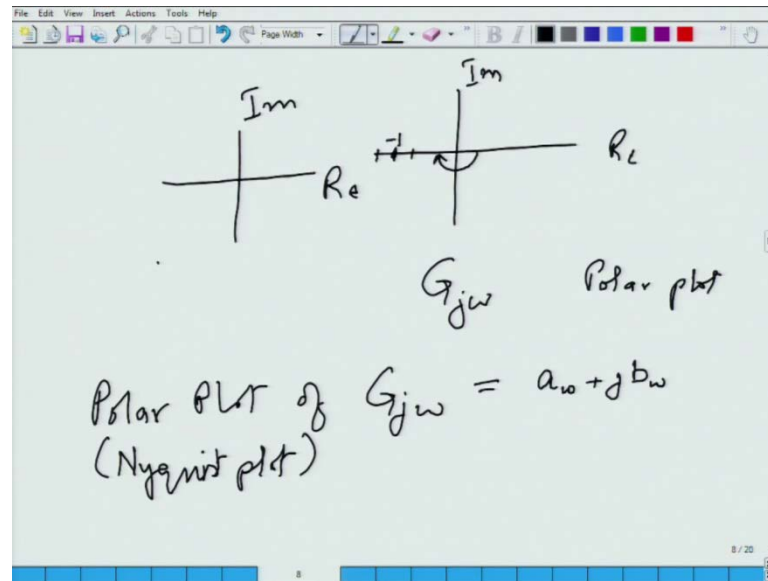 File Edit View Insert Actions Tools Help
Page Width
B I
Im
Im
-1
Re
Re
Gjω
Polar plot
Polar Plot of Gjω = aω + jbω
(Nyquist plot)
8 / 20
8